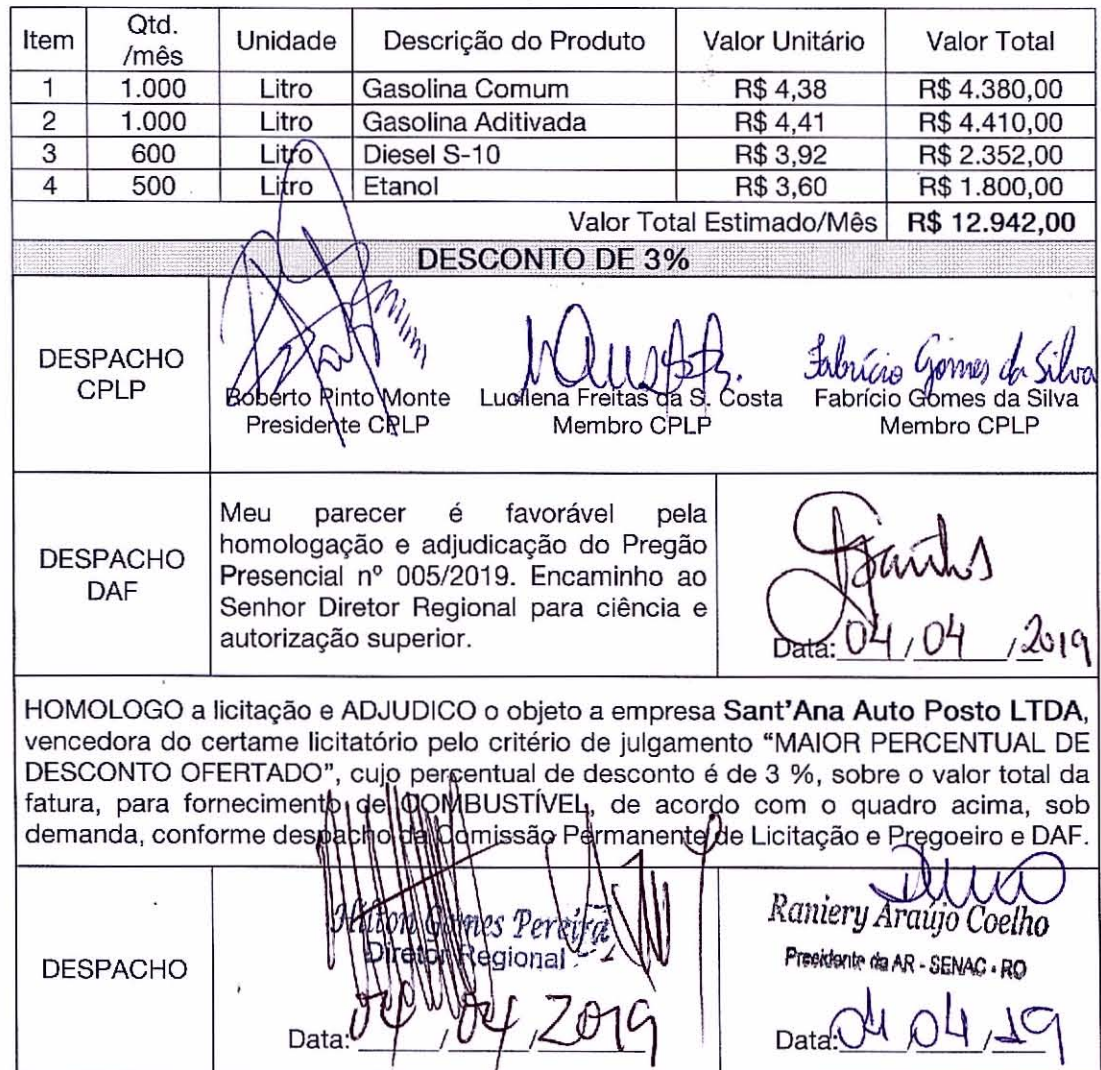 Item Qtd. /mês Unidade Descrição do Produto Valor Unitário Valor Total
1 1.000 Litro Gasolina Comum R$ 4,38 R$ 4.380,00
2 1.000 Litro Gasolina Aditivada R$ 4,41 R$ 4.410,00
3 600 Litro Diesel S-10 R$ 3,92 R$ 2.352,00
4 500 Litro Etanol R$ 3,60 R$ 1.800,00
Valor Total Estimado/Mês R$ 12.942,00
DESCONTO DE 3%
DESPACHO
CPLP
Fabrício Gomes da Silva
Roberto Pinto Monte
Presidente CPLP
Lucilena Freitas da S. Costa
Membro CPLP
Fabrício Gomes da Silva
Membro CPLP
DESPACHO
DAF
Meu parecer é favorável pela
homologação e adjudicação do Pregão
Presencial nº 005/2019. Encaminho ao
Senhor Diretor Regional para ciência e
autorização superior.
Data: 04/04/2019
HOMOLOGO a licitação e ADJUDICO o objeto a empresa Sant'Ana Auto Posto LTDA,
vencedora do certame licitatório pelo critério de julgamento “MAIOR PERCENTUAL DE
DESCONTO OFERTADO”, cujo percentual de desconto é de 3 %, sobre o valor total da
fatura, para fornecimento de COMBUSTÍVEL, de acordo com o quadro acima, sob
demanda, conforme despacho da Comissão Permanente de Licitação e Pregoeiro e DAF.
DESPACHO
Hilton Gomes Pereira
Diretor Regional
Data: 04/04/2019
Raniery Araújo Coelho
Presidente da AR - SENAC - RO
Data: 04/04/19